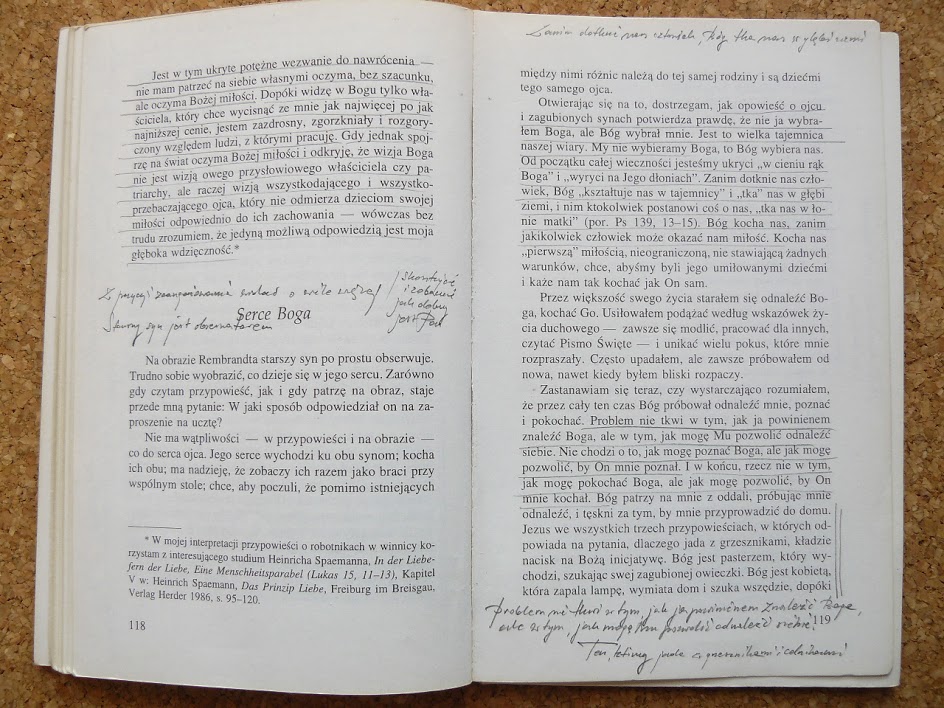 Jest w tym ukryte potężne wezwanie do nawrócenia —
nie mam patrzeć na siebie własnymi oczyma, bez szacunku,
ale oczyma Bożej miłości. Dopóki widzę w Bogu tylko wła-
ściciela, który chce wycisnąć ze mnie jak najwięcej po jak
najniższej cenie, jestem zazdrosny, zgorzkniały i rozgory-
czony względem ludzi, z którymi pracuję. Gdy jednak spoj-
rzę na świat oczyma Bożej miłości i odkryję, że wizja Boga
nie jest wizją owego przysłowiowego właściciela czy pa-
triarchy, ale raczej wizją wszystkodającego i wszystko-
przebaczającego ojca, który nie odmierza dzieciom swojej
miłości odpowiednio do ich zachowania — wówczas bez
trudu zrozumiem, że jedyną możliwą odpowiedzią jest moja
głęboka wdzięczność.*
i zobaczcie
jak dobry
jest Pan
Starszy syn jest obserwatorem
Serce Boga
Na obrazie Rembrandta starszy syn po prostu obserwuje.
Trudno sobie wyobrazić, co dzieje się w jego sercu. Zarówno
gdy czytam przypowieść, jak i gdy patrzę na obraz, staje
przede mną pytanie: W jaki sposób odpowiedział on na za-
proszenie na ucztę?
Nie ma wątpliwości — w przypowieści i na obrazie —
co do serca ojca. Jego serce wychodzi ku obu synom; kocha
ich obu; ma nadzieję, że zobaczy ich razem jako braci przy
wspólnym stole; chce, aby poczuli, że pomimo istniejących
* W mojej interpretacji przypowieści o robotnikach w winnicy ko-
rzystam z interesującego studium Heinricha Spaemanna, In der Liebe-
fern der Liebe, Eine Menschheitsparabel (Lukas 15, 11–13), Kapitel
V w: Heinrich Spaemann, Das Prinzip Liebe, Freiburg im Breisgau,
Verlag Herder 1986, s. 95–120.
118
Zanim dotknie nas człowiek, Bóg tka nas w głębi ziemi
między nimi różnic należą do tej samej rodziny i są dziećmi
tego samego ojca.
Otwierając się na to, dostrzegam, jak opowieść o ojcu
i zagubionych synach potwierdza prawdę, że nie ja wybra-
łem Boga, ale Bóg wybrał mnie. Jest to wielka tajemnica
naszej wiary. My nie wybieramy Boga, to Bóg wybiera nas.
Od początku całej wieczności jesteśmy ukryci „w cieniu rąk
Boga” i „wyryci na Jego dłoniach”. Zanim dotknie nas czło-
wiek, Bóg „kształtuje nas w tajemnicy” i „tka” nas w głębi
ziemi, i nim ktokolwiek postanowi coś o nas, „tka nas w ło-
nie matki” (por. Ps 139, 13–15). Bóg kocha nas, zanim
jakikolwiek człowiek może okazać nam miłość. Kocha nas
„pierwszą” miłością, nieograniczoną, nie stawiającą żadnych
warunków, chce, abyśmy byli jego umiłowanymi dziećmi
i każe nam tak kochać jak On sam.
Przez większość swego życia starałem się odnaleźć Bo-
ga, kochać Go. Usiłowałem podążać według wskazówek ży-
cia duchowego — zawsze się modlić, pracować dla innych,
czytać Pismo Święte — i unikać wielu pokus, które mnie
rozpraszały. Często upadałem, ale zawsze próbowałem od
nowa, nawet kiedy byłem bliski rozpaczy.
Zastanawiam się teraz, czy wystarczająco rozumiałem,
że przez cały ten czas Bóg próbował odnaleźć mnie, poznać
i pokochać. Problem nie tkwi w tym, jak ja powinienem
znaleźć Boga, ale w tym, jak mogę Mu pozwolić odnaleźć
siebie. Nie chodzi o to, jak mogę poznać Boga, ale jak mogę
pozwolić, by On mnie poznał. I w końcu, rzecz nie w tym,
jak mogę pokochać Boga, ale jak mogę pozwolić, by On
mnie kochał. Bóg patrzy na mnie z oddali, próbując mnie
odnaleźć, i tęskni za tym, by mnie przyprowadzić do domu.
Jezus we wszystkich trzech przypowieściach, w których od-
powiada na pytania, dlaczego jada z grzesznikami, kładzie
nacisk na Bożą inicjatywę. Bóg jest pasterzem, który wy-
chodzi, szukając swej zagubionej owieczki. Bóg jest kobietą,
która zapala lampę, wymiata dom i szuka wszędzie, dopóki
Problem nie tkwi w tym, jak ja powinienem znaleźć Boga,
ale w tym, jak mogę Mu pozwolić odnaleźć siebie!
119
Ten, który jada z grzesznikami i celnikami